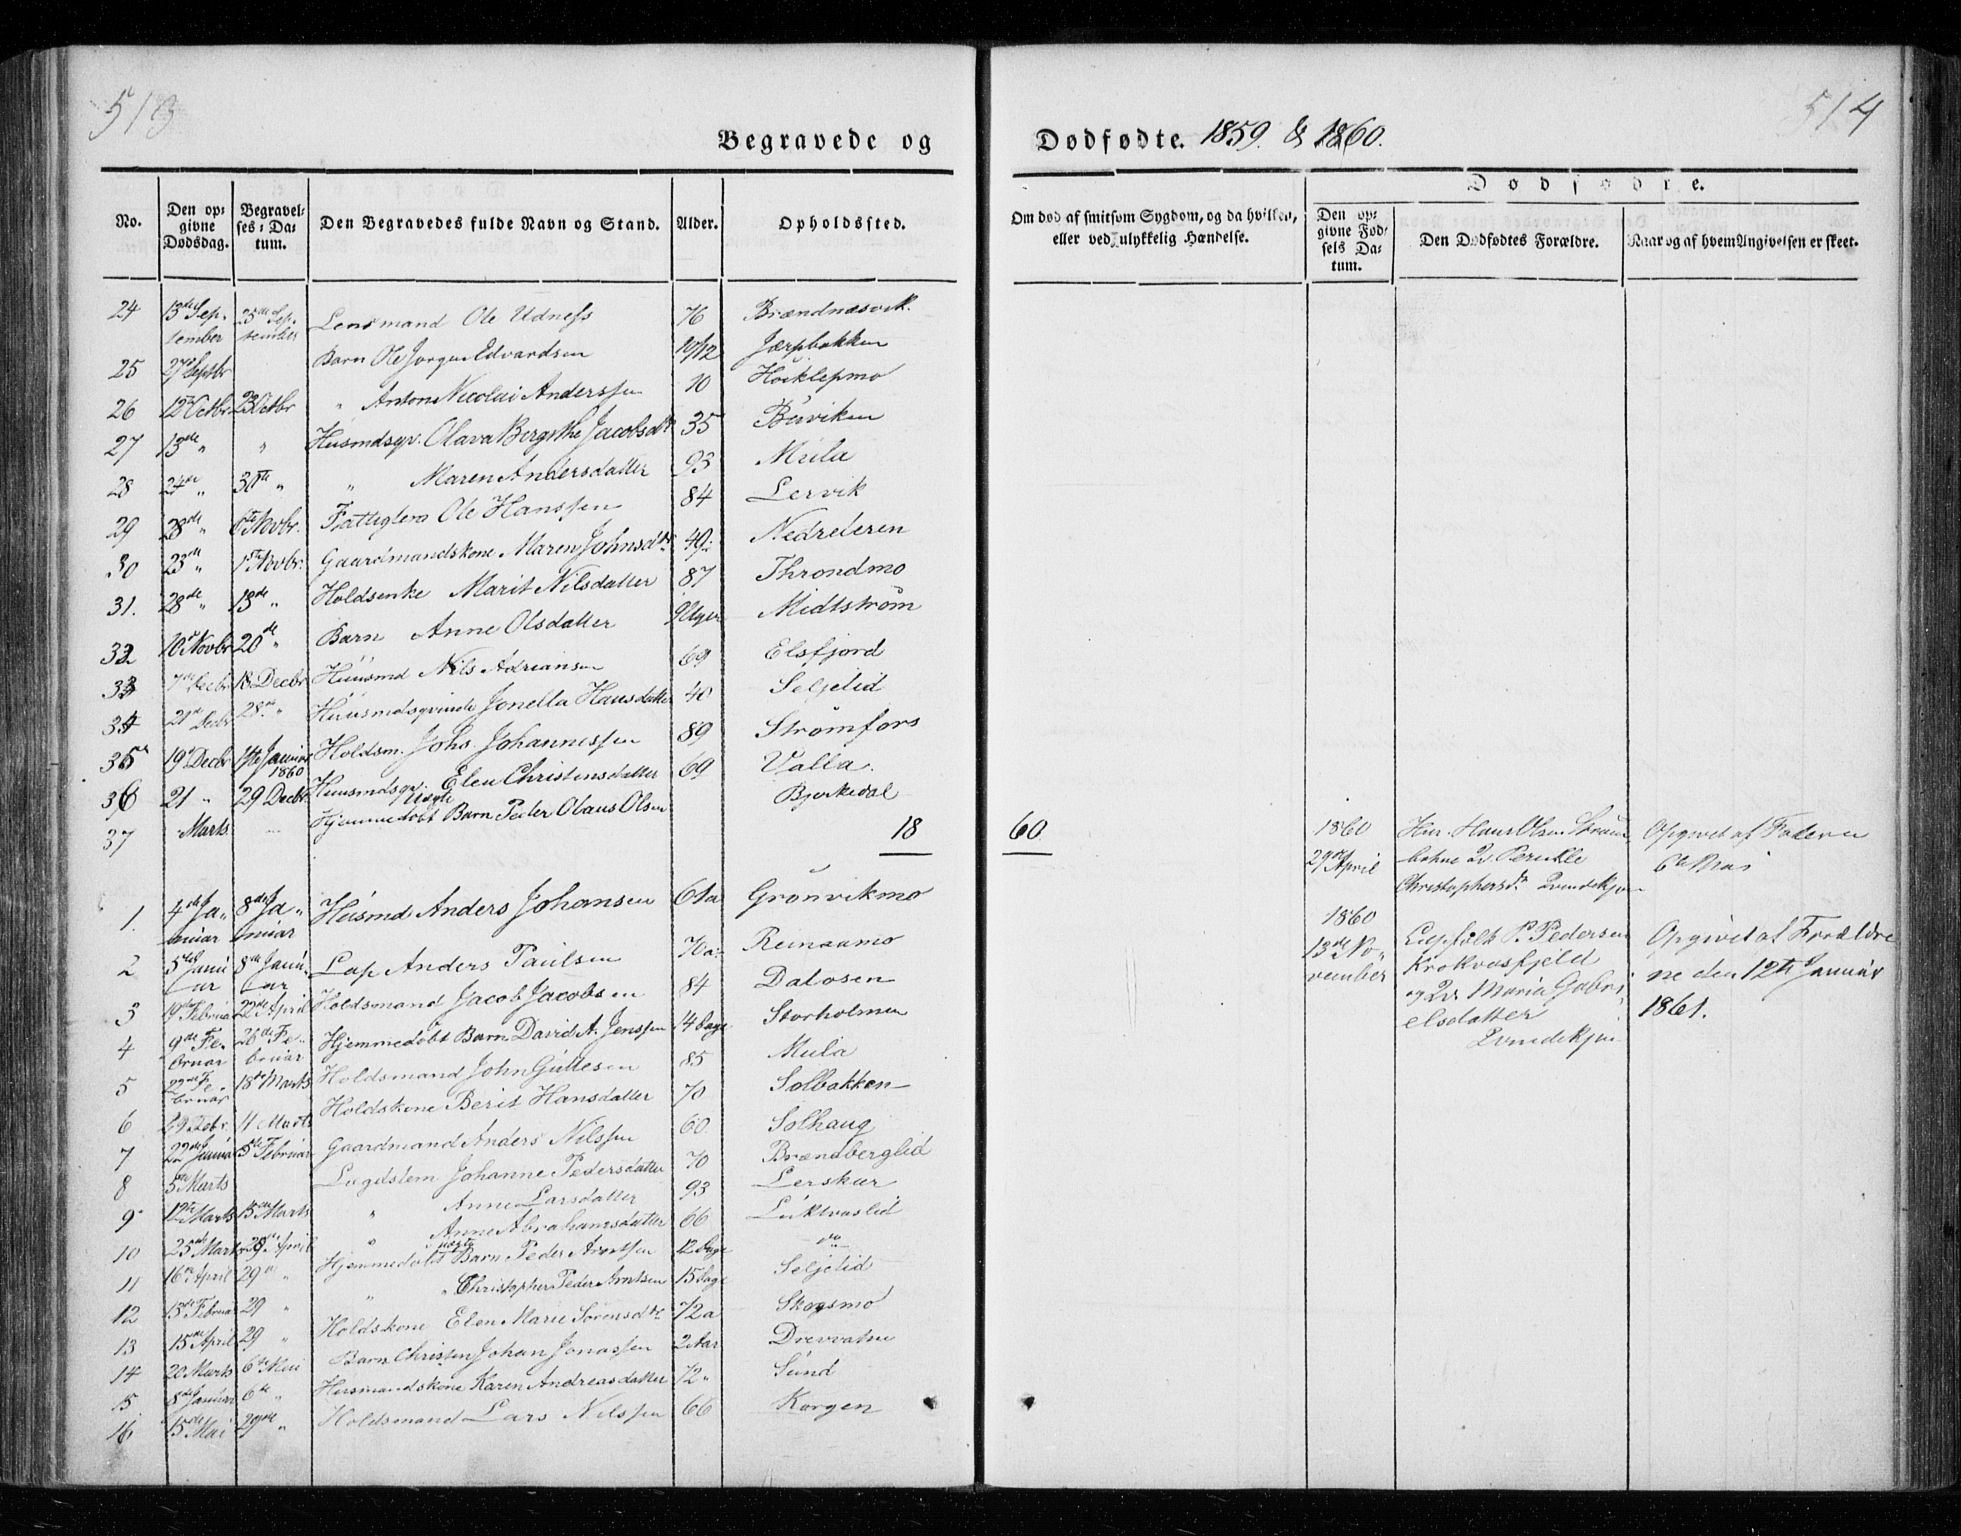 513
514
Begravede og
Dødfødte. 1859. & 1860.
No.
Den opgivne Dødsdag.
Begravelses-Datum.
Den Begravedes fulde Navn og Stand.
Alder.
Opholdssted.
Om død af smitsom Sygdom, og da hvilken, eller ved ulykkelig Hændelse.
Dødfødte.
Den opgivne Fødsels Datum.
Den Dødfødtes Forældre.
Naar og af hvem Angivelsen er skeet.
24 13de September 25de September Lensmand Ole Udness 76 Brændnæsvik.
25 27 Septbr Barn Ole Jørgen Edvardsen 10/12 Jærpbakken
26 12 Octbr 23 Octbr " Anton Nicolai Anderssen 10
27 13de " " Husmdsqv. Olava Bergithe Jacobsdtr 35
28 24de " 30te " " Maren Andersdatter 93 Mula
29 28de " 6te Novbr. Fattiglem Ole Hanssen 84 Lervik
30 23de " 1ste Novbr. Gaardmandskone Maren Johnsdtr 49 Nedreleren
31. 28de " 13de " Holdsenke Marit Nilsdatter 87 Throndmo
32 10de Novbr 20de " Barn Anne Olsdatter 9 Uger Midtstrøm
33 7de Decbr 18 Decbr Huusmd Nils Adriansen 69 Elsfjord
34 21de Decbr 28de " Huusmdsqvinde Jonella Hansdatter 40 Seljelid
35 19 Decbr 1ste Januar 1860 Holdsm. Johs. Johannessen 89 Strømfors
36 21 " 29 Decbr Huusmdsqv. Elen Christensdatter 69 Valla.
37 Marts Hjemmedøbt uægte Barn Peder Olaus Olsen Bjerkedal
1860
18
60
1. 4de Januar 8de Januar Husmd Anders Johansen 61 a Grønvikmo
2 5te Januar 8de Januar Lap Anders Paulsen 70 a Reinaamo
3 19de Februar 22de April Holdsmand Jacob Jacobsen 84 Dalosen
4 9de Februar 26de Februar Hjemmedøbt Barn David A. Jenssen 14 Dage Storholmen
5 22de Februar 18de Marts Holdsmand John Guttesen 85 Mula
6 29 Febr. 11 Marts Holdskone Berit Hansdatter 70 Solbakken
7 22de Januar 5te Februar Gaardmand Anders Nilssen 60 Solhaug
8 5te Marts Lægdslem Johanne Pedersdatter 70 Brændberglid
9 12te Marts 13de Marts " Anne Larsdatter 93 Lerskar
10 25de Marts 28de April " Anne Abrahamsdatter 66 Luktvaslid
11 16de April 29de " Hjemmedøbt uægte Barn Peder Arntsen 12 Dage do
12 15de Februar 29 " " " Christopher Peder Arntsen 15 Dage Seljelid
13 15de April 29 " Holdskone Elen Marie Sørensdtr 72 a Skogsmo
14 20 Marts 6te Mai Barn Christen Johan Jonassen 2 Aar Drevvatne
15 8de Januar 6te " Husmandskone Karen Andreasdatter 72 " Sund
16 15de Mai 29de " Holdsmand Lars Nilssen 66 Korgen
1860
29de April
Hans Olsen
Christophersdr. Qvindekjøn
Opgivet af Faderen
6te Mai
1860
13de November
P. Pedersen
Krokvasfjeld
og Qv. Maria Gabrielsdatter
Qvindekjøn
Opgivet af Forældrene den 12te Januar
1861.